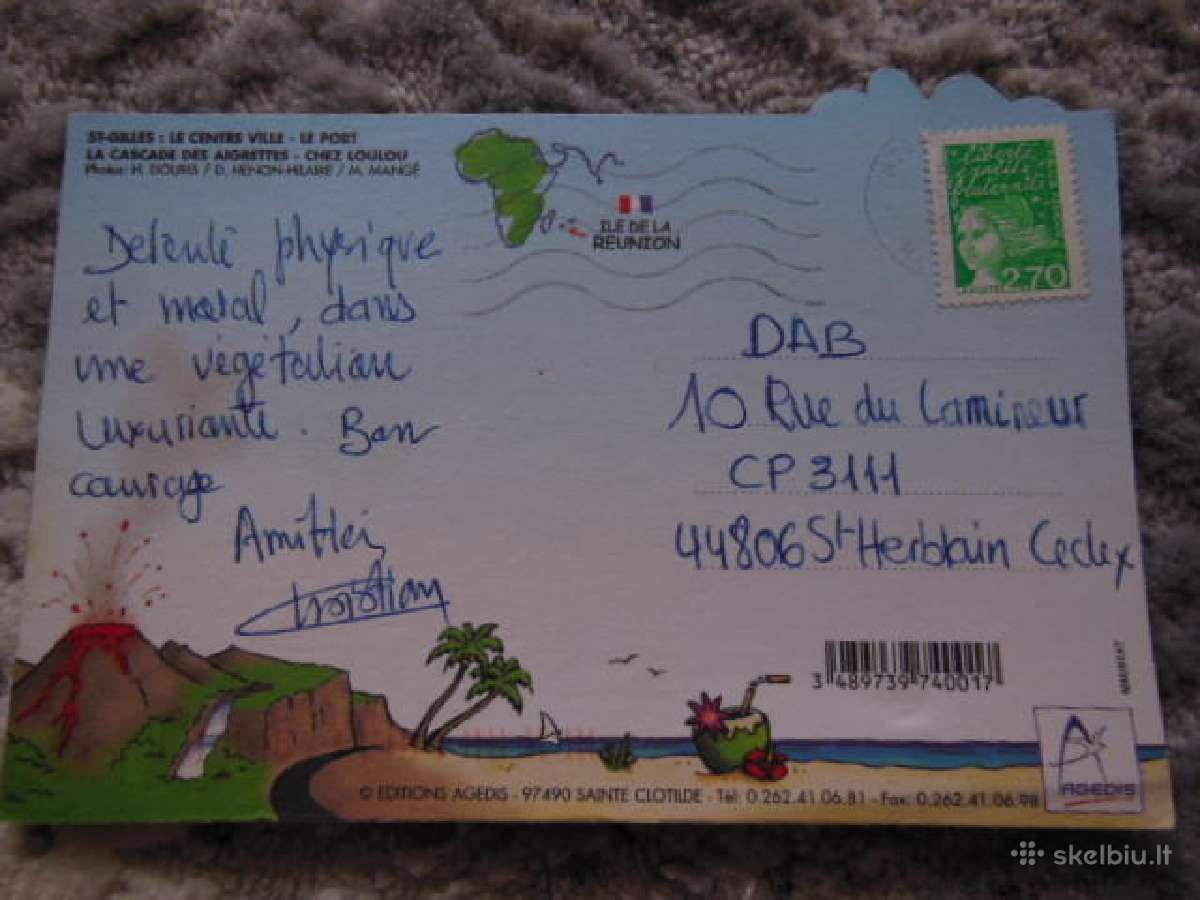 ST-GILLES : LE CENTRE VILLE - LE PORT
LA CASCADE DES AIGRETTES - CHEZ LOULOU
Photos: H. DOURIS / D. HENON-HILAIRE / M. MANGÉ
ILE DE LA
RÉUNION
Liberté
égalité
fraternité
2.70
physique
et moral, dans
une végétalian
Luxuriante. Bon
courage
Christian
DAB
10 Rue du Lamineur
CP 3111
44806 St Herblain Cedex
3 489739 740017
AGEDIS
© EDITIONS AGEDIS - 97490 SAINTE CLOTILDE - Tél: 0.262.41.06.81 - Fax: 0.262.41.06.98
skelbiu.lt